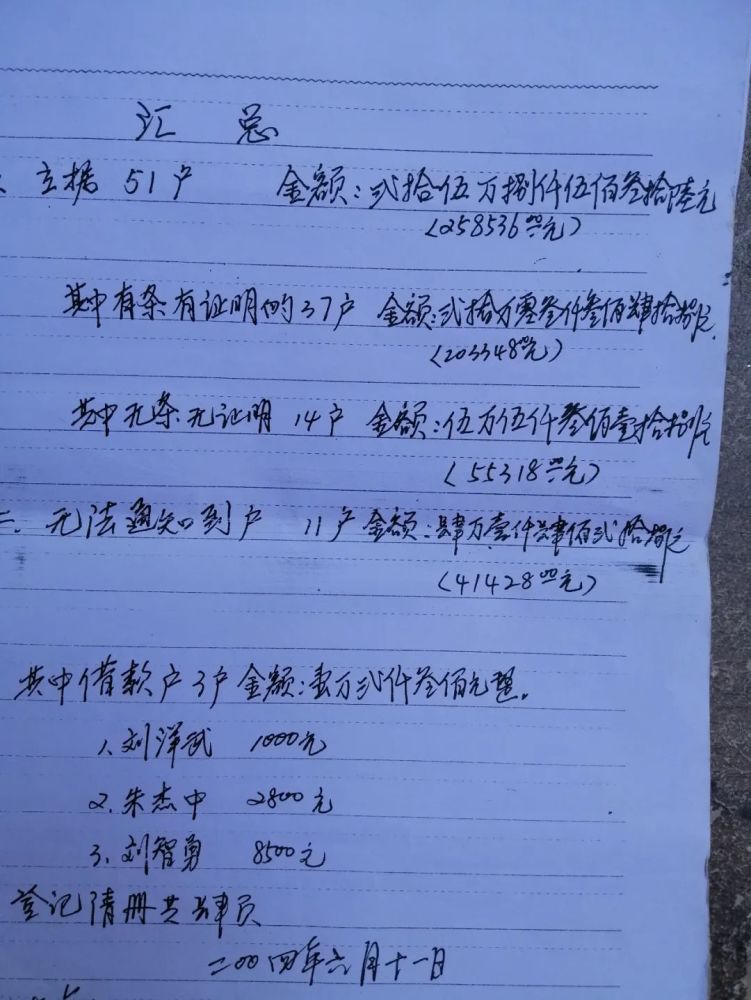 汇 总
、立据 51户 金额：弍拾伍万捌仟伍佰叁拾陆元
(258536.00元)
其中有条有证明的37户 金额：弍拾万零叁仟叁佰肆拾捌元
(203348.00元)
其中无条无证明 14户 金额：伍万伍仟叁佰壹拾捌元
(55318.00元)
二、无法通知到户 11户 金额：肆万壹仟肆佰弍拾捌元
(41428.00元)
其中借款户3户金额：壹万弍仟叁佰元整.
1、刘洋武 1000元
2、朱杰中 2800元
3、刘智勇 8500元
登记清册共肆页
二00四年六月十一日